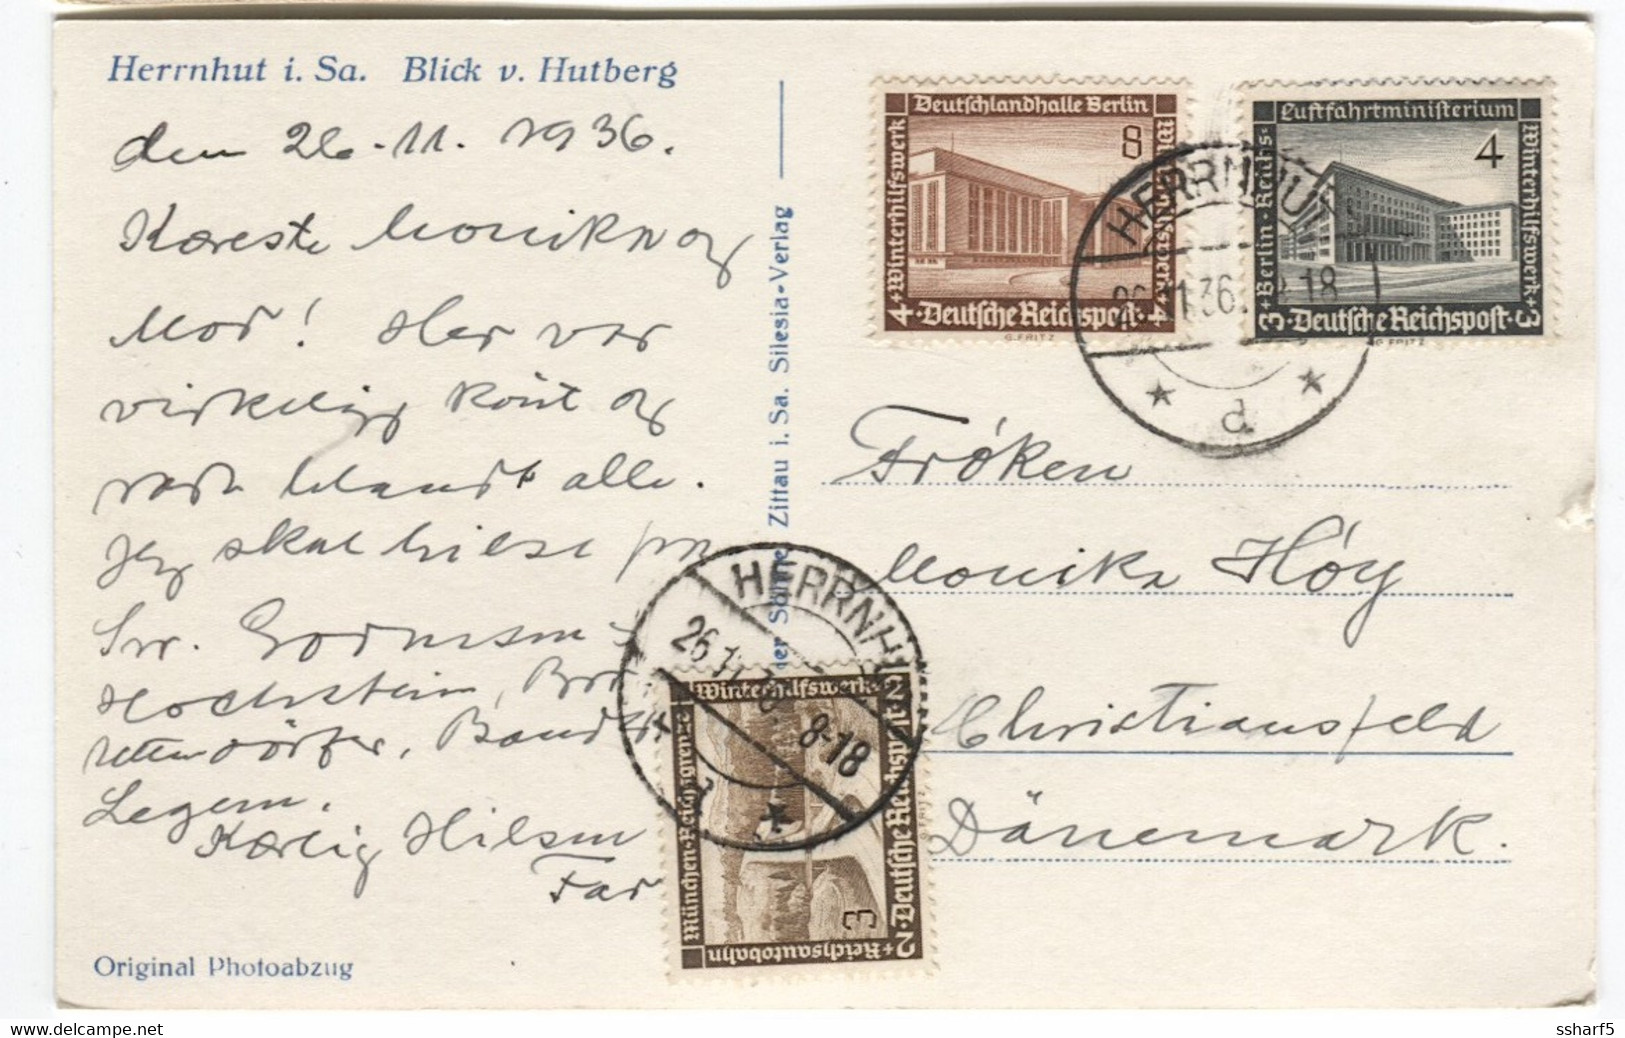 Herrnhut i. Sa. Blick v. Hutberg
den 26-11. 1936.
Kæreste Monika og
Mor! Her var
virkelig kønt og
rart blandt alle.
Jeg skal hilse fra
Sw. Gormsen
Hochstein, Brd.
dörfer, Baudert
Legem.
Kærlig Hilsen
Far
Original Photoabzug
ner Söhne Zittau i. Sa. Silesia-Verlag
Deutschlandhalle Berlin
8
Winterhilfswerk
4 · Deutsche Reichspost · 4
G. FRITZ
Luftfahrtministerium
4
Berlin · Reichs-
Winterhilfswerk
3 · Deutsche Reichspost · 3
G. FRITZ
HERRNHUT
26.11.36. 18
d
Fröken
Monika Höy
Christiansfeld
Dänemark.
HERRNHUT
26.11.36. 8-18
d
Winterhilfswerk
2
München-Reichsgrenze
2 · Deutsche Reichspost
Reichsautobahn
3
ssharf5